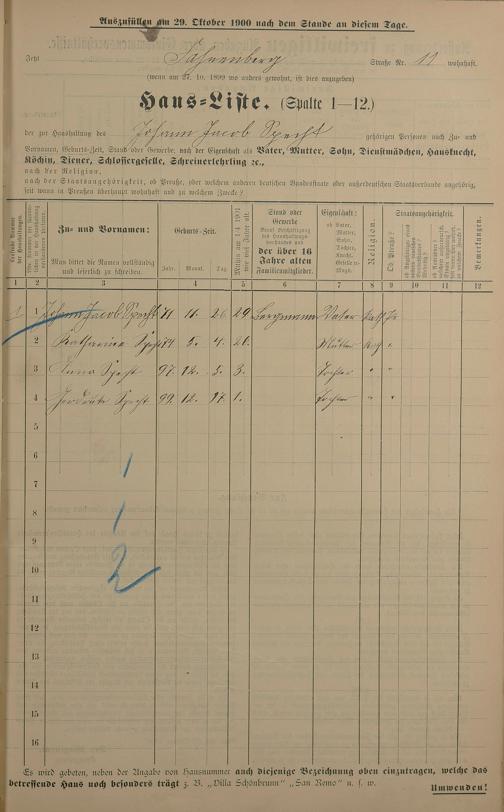 Auszufüllen am 29. Oktober 1900 nach dem Stande an diesem Tage.
Jetzt Straße Nr. 11 wohnhaft.
(wenn am 27. 10. 1899 wo anders gewohnt, ist dies anzugeben)
Haus-Liste. (Spalte 1—12.)
der zur Haushaltung des Johann Jacob Specht gehörigen Personen nach Zu- und
Vornamen, Geburts-Zeit, Stand oder Gewerbe, nach der Eigenschaft als Vater, Mutter, Sohn, Dienstmädchen, Hausknecht,
Köchin, Diener, Schlossergeselle, Schreinerlehrling ꝛc.,
nach der Religion,
nach der Staatsangehörigkeit, ob Preuße, oder welchem anderen deutschen Bundesstaate oder außerdeutschen Staatsverbande angehörig,
seit wann in Preußen überhaupt wohnhaft und zu welchem Zwecke?
Zu- und Vornamen:
Man bittet die Namen vollständig und leserlich zu schreiben.
Geburts-Zeit.
Jahr. Monat. Tag.
Stand oder Gewerbe
der über 16 Jahre alten Familienmitglieder.
Eigenschaft:
ob Vater, Mutter, Sohn, Tochter, Knecht, Geselle o. Magd.
Religion.
Staatsangehörigkeit.
Ob Preuße?
Bemerkungen.
1 2 3 4 5 6 7 8 9 10 11 12
1 1 Johann Jacob Specht 71 11. 26. 29 Bergmann Vater Kath Pr
2 Katharina Specht 74 Mutter "
3 Anna Specht 97. 12. 3. 3. Tochter " "
4 Specht 99. 12. 17. 1. Tochter " "
5
6
7
8
9
10
11
12
13
14
15
16
1
1
2
Es wird gebeten, neben der Angabe von Hausnummer auch diejenige Bezeichnung oben einzutragen, welche das
betreffende Haus noch besonders trägt z. B. „Villa Schönbrunn" „San Remo" u. s. w. Umwenden!